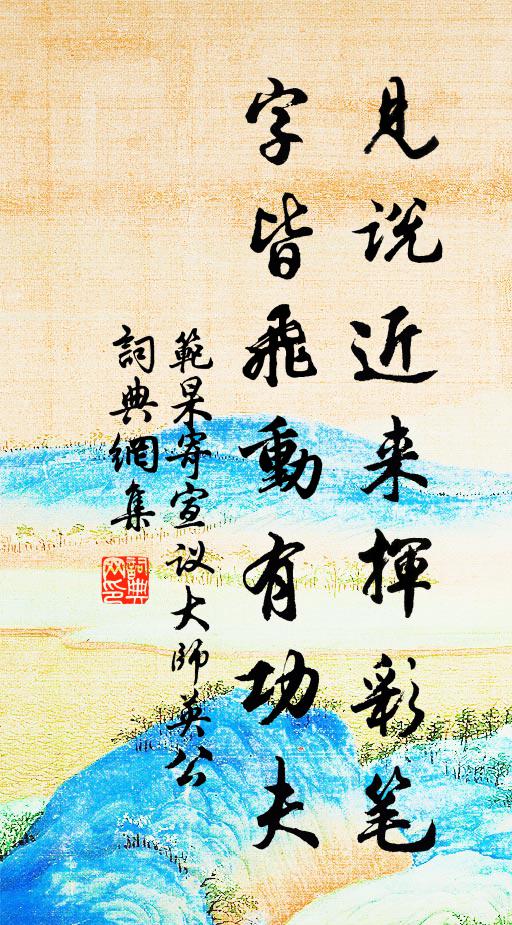 見说近来揮彩笔
字皆飛動有功夫
範杲寄宣议大師英公
詞典網集
詞典网印